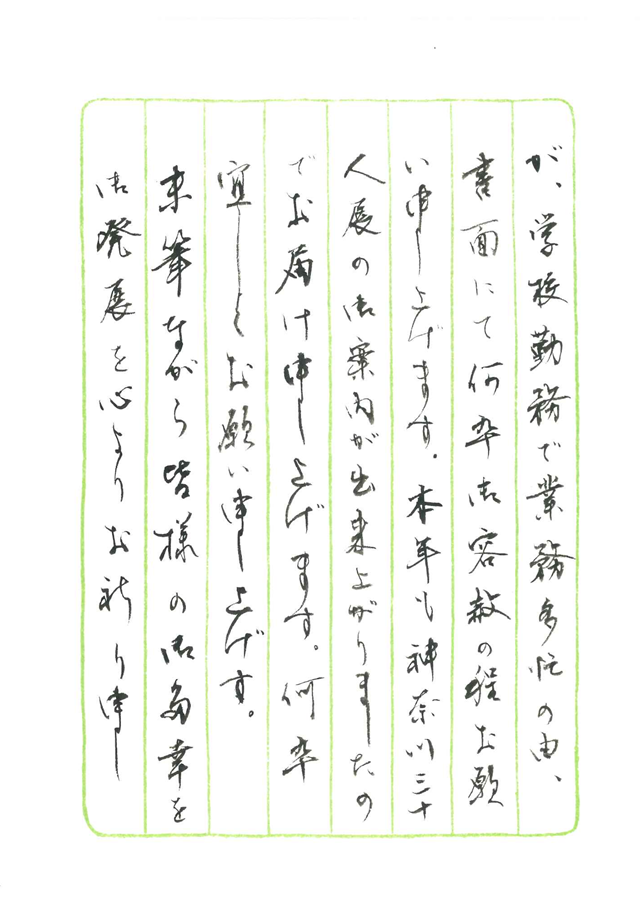 が、学校勤務で業務多忙の由、
書面にて何卒御容赦の程お願
い申し上げます。本年も神奈川三十
人展の御案内が出来上がりましたの
でお届け申し上げます。何卒
宜しくお願い申し上げす。
末筆ながら皆様の御多幸を
御発展を心よりお祈り申し